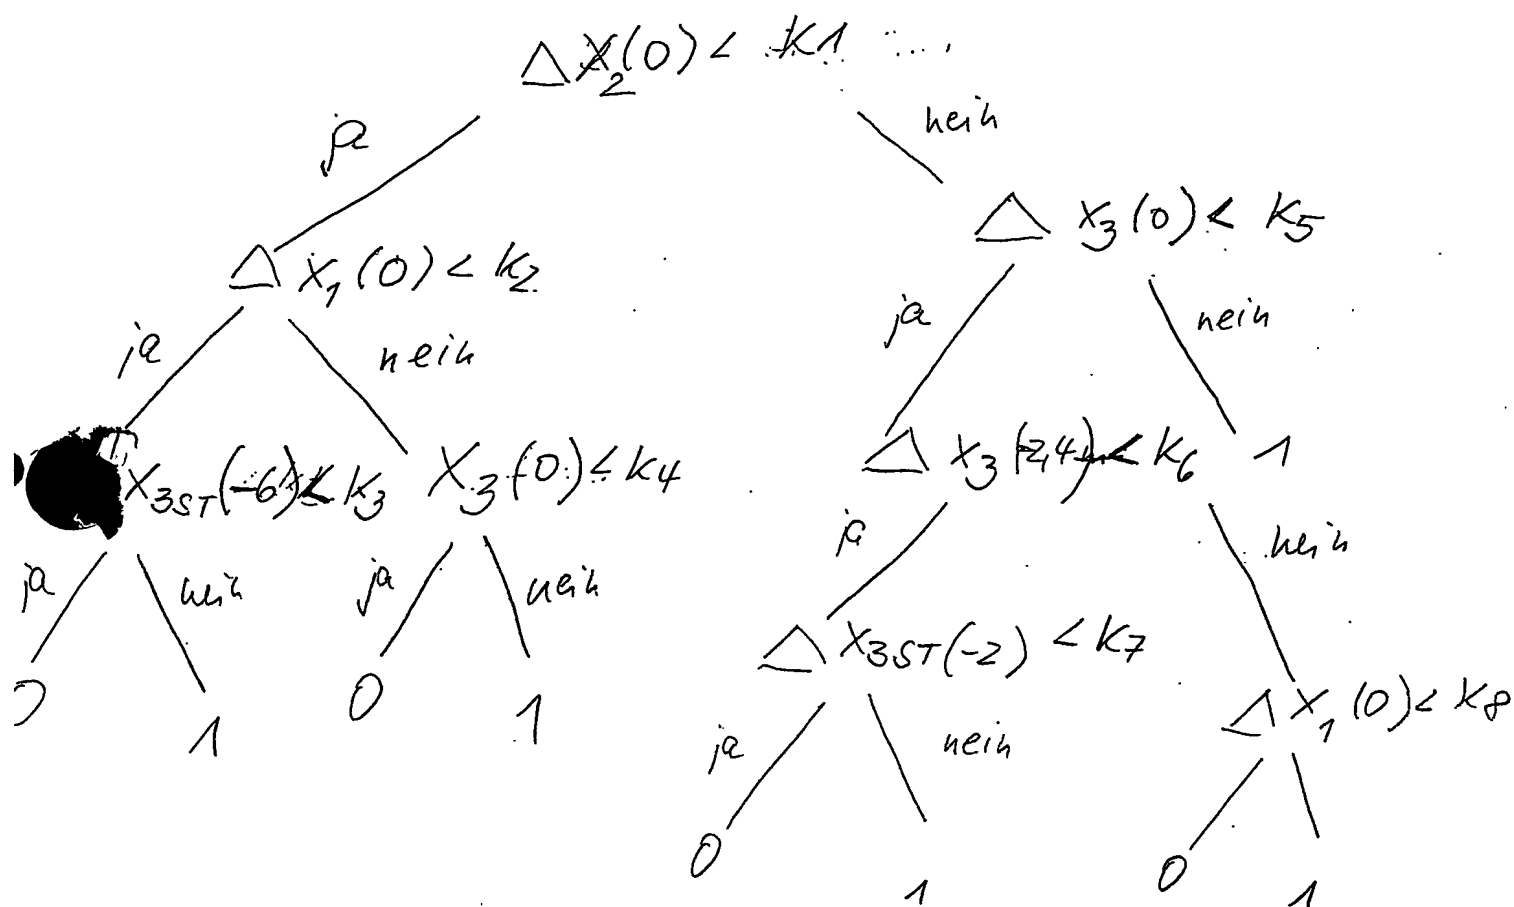 ΔX₂(0) < K1
ja nein
Δ X₃(0) < K₅
Δ X₁(0) < K₂
ja nein
ja nein
X₃ST(-6) < K₃ X₃(0) ≤ K4 Δ X₃(-2,4) < K₆ 1
ja nein ja nein ja nein
Δ X₃ST(-2) < K₇
0 1 0 1 Δ X₁(0) < K₈
ja nein
0 1 0 1